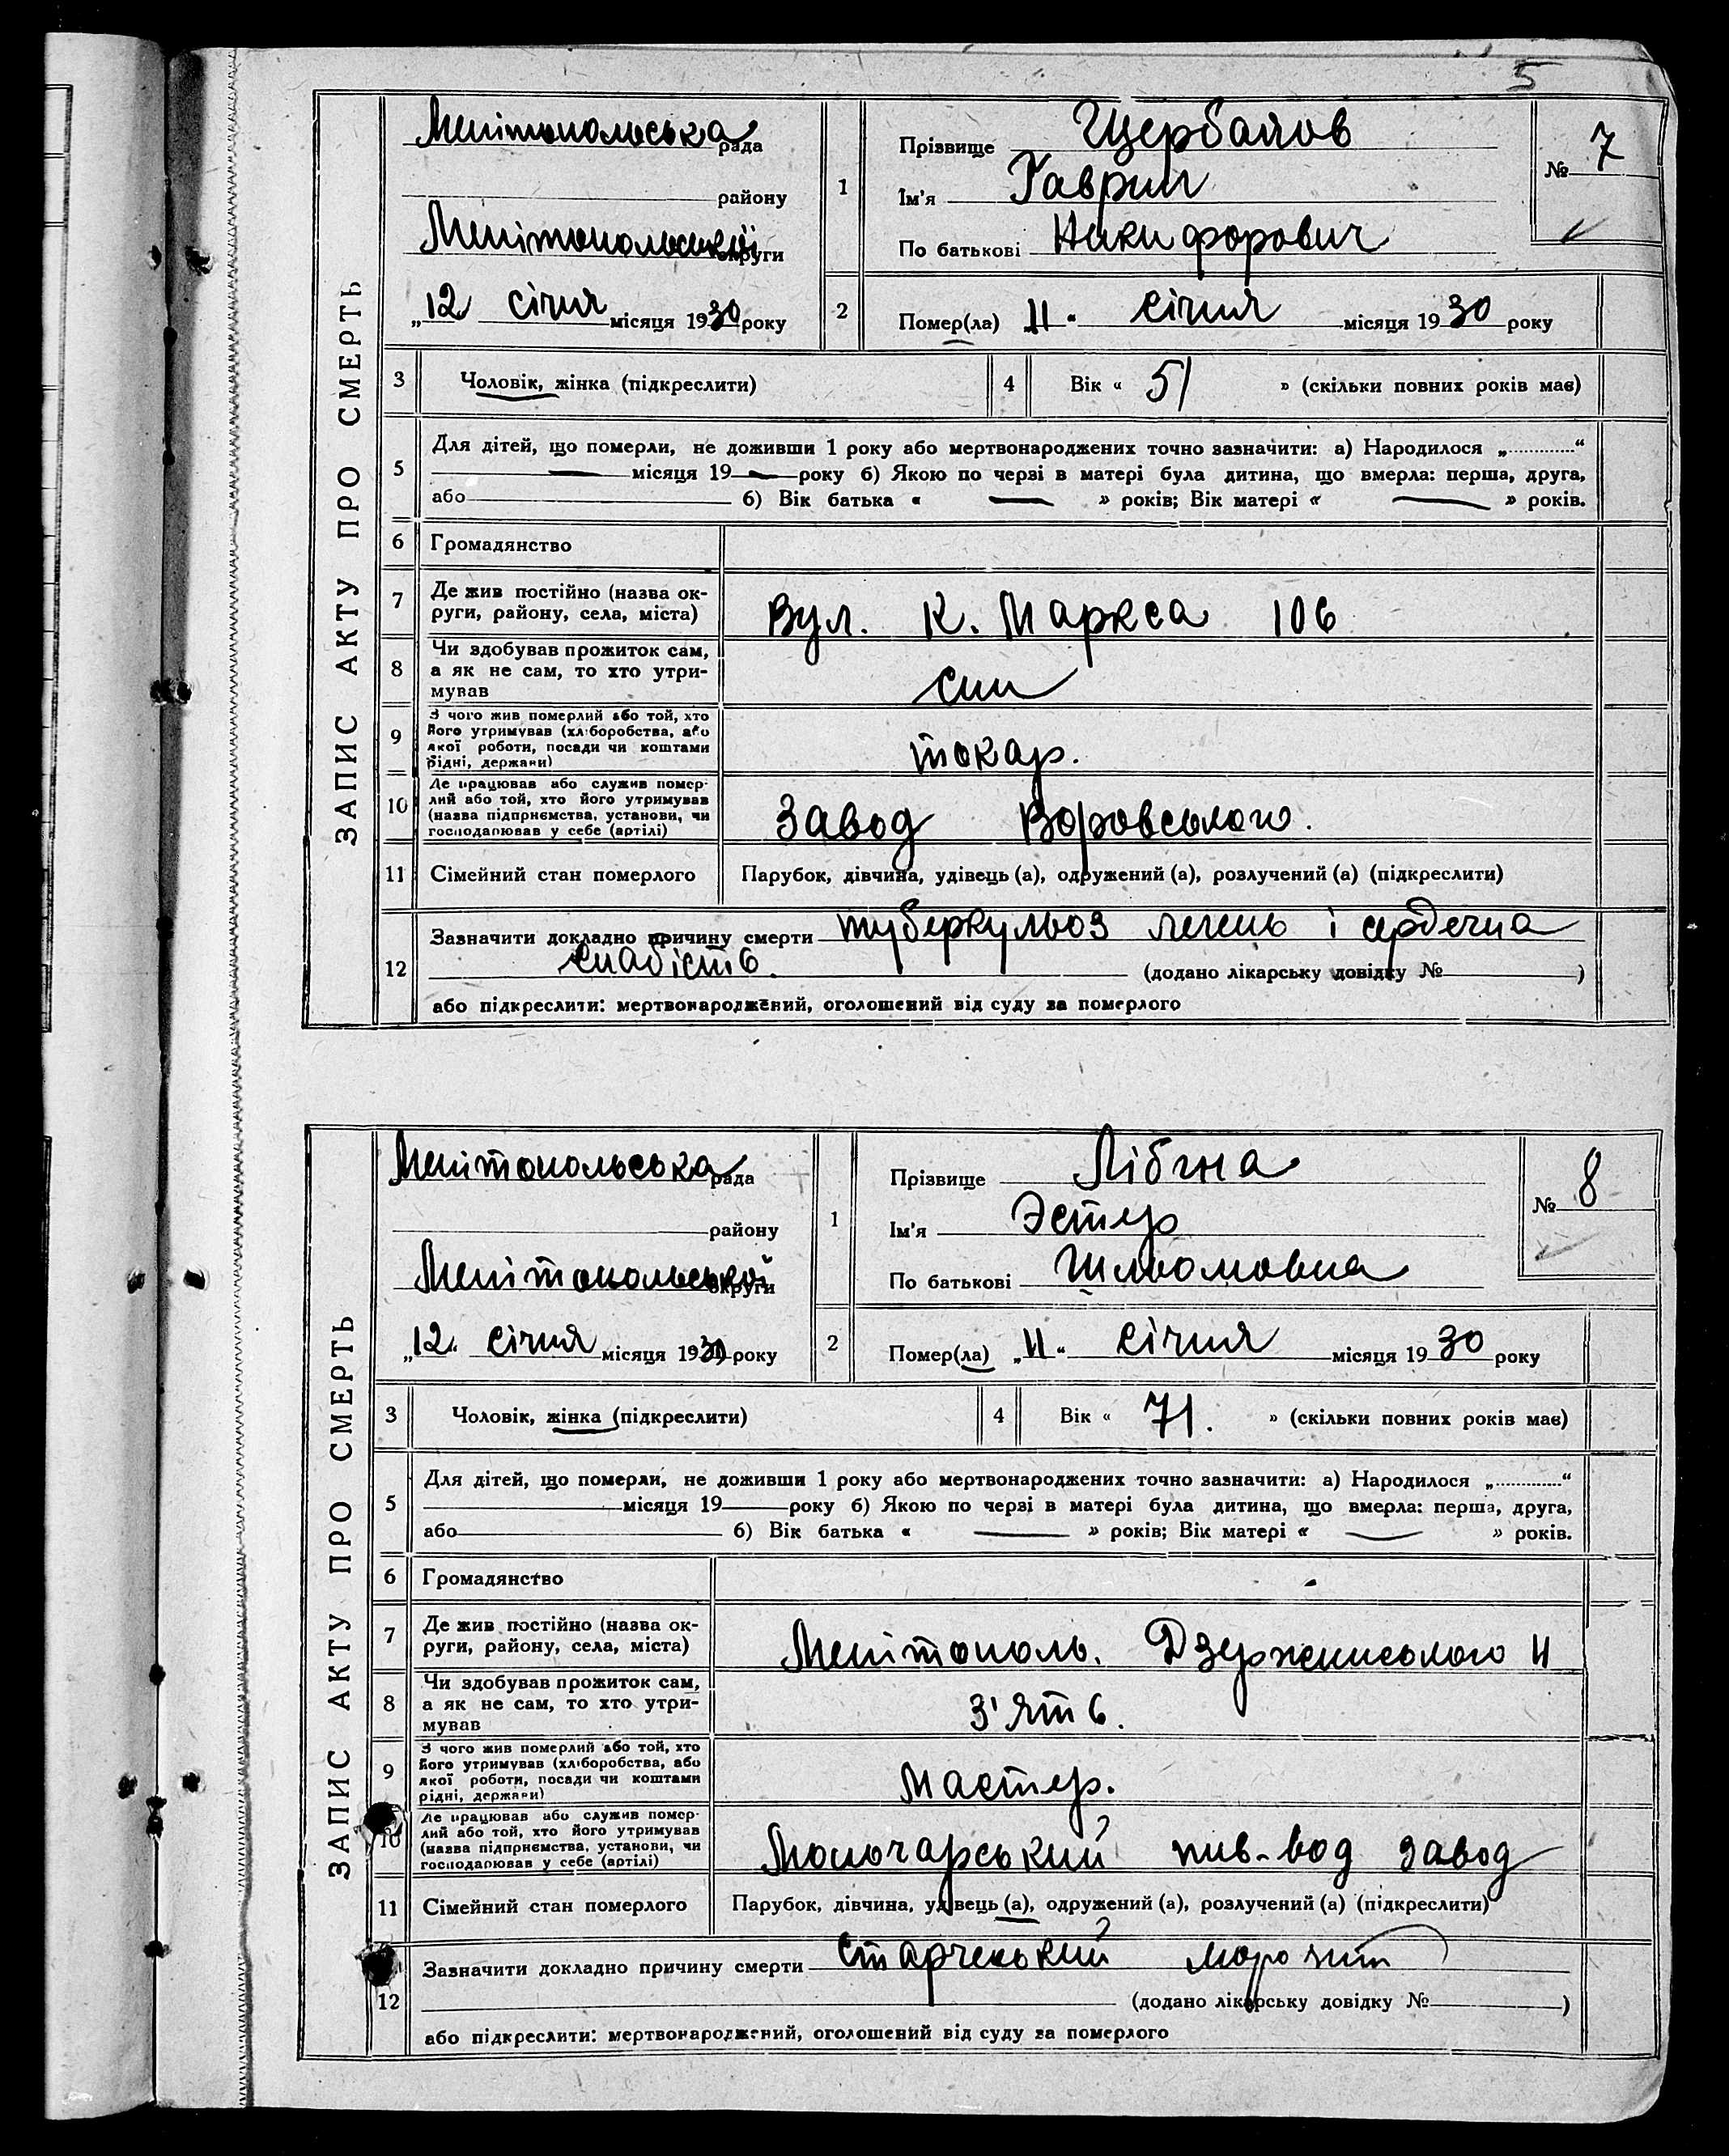 5
ЗАПИС АКТУ ПРО СМЕРТЬ
Мелітопольська рада
району
Мелітопольської округи
„12 січня місяця 1930 року
1
Прізвище Щербаков
Ім'я Гаврил
По батькові Никифорович
№ 7
2
Помер(ла) „11“ січня місяця 1930 року
3 Чоловік, жінка (підкреслити)
4 Вік « 51 » (скільки повних років має)
5 Для дітей, що померли, не доживши 1 року або мертвонароджених точно зазначити: а) Народилося „............“
місяця 19 — року б) Якою по черзі в матері була дитина, що вмерла: перша, друга,
або б) Вік батька « — » років; Вік матері « — » років.
6 Громадянство
7 Де жив постійно (назва ок-
руги, району, села, міста)
Вул. К. Маркса 106
8 Чи здобував прожиток сам,
а як не сам, то хто утри-
мував
син
9 З чого жив померлий або той, хто
його утримував (хліборобства, або
якої роботи, посади чи коштами
рідні, держави)
токар.
10 Де працював або служив помер-
лий або той, хто його утримував
(назва підприємства, установи, чи
господарював у себе (артілі)
Завод Воровського.
11 Сімейний стан померлого
Парубок, дівчина, удівець (а), одружений (а), розлучений (а) (підкреслити)
12 Зазначити докладно причину смерти туберкульоз легень і сердечна
слабість. (додано лікарську довідку № )
або підкреслити: мертвонароджений, оголошений від суду за померлого
ЗАПИС АКТУ ПРО СМЕРТЬ
Мелітопольська рада
району
Мелітопольської округи
„12 січня місяця 1930 року
1
Прізвище
Ім'я Эстер
По батькові Шльомовна
№ 8
2
Помер(ла) „11“ січня місяця 1930 року
3 Чоловік, жінка (підкреслити)
4 Вік « 71. » (скільки повних років має)
5 Для дітей, що померли, не доживши 1 року або мертвонароджених точно зазначити: а) Народилося „............“
місяця 19 року б) Якою по черзі в матері була дитина, що вмерла: перша, друга,
або б) Вік батька « — » років; Вік матері « — » років.
6 Громадянство
7 Де жив постійно (назва ок-
руги, району, села, міста)
Мелітополь. Дзержинського 11
8 Чи здобував прожиток сам,
а як не сам, то хто утри-
мував
з'ять.
9 З чого жив померлий або той, хто
його утримував (хліборобства, або
якої роботи, посади чи коштами
рідні, держави)
мастер.
10 Де працював або служив помер-
лий або той, хто його утримував
(назва підприємства, установи, чи
господарював у себе (артілі)
Молочарський пив-вод завод
11 Сімейний стан померлого
Парубок, дівчина, удівець (а), одружений (а), розлучений (а) (підкреслити)
12 Зазначити докладно причину смерти старчеський
(додано лікарську довідку № )
або підкреслити: мертвонароджений, оголошений від суду за померлого